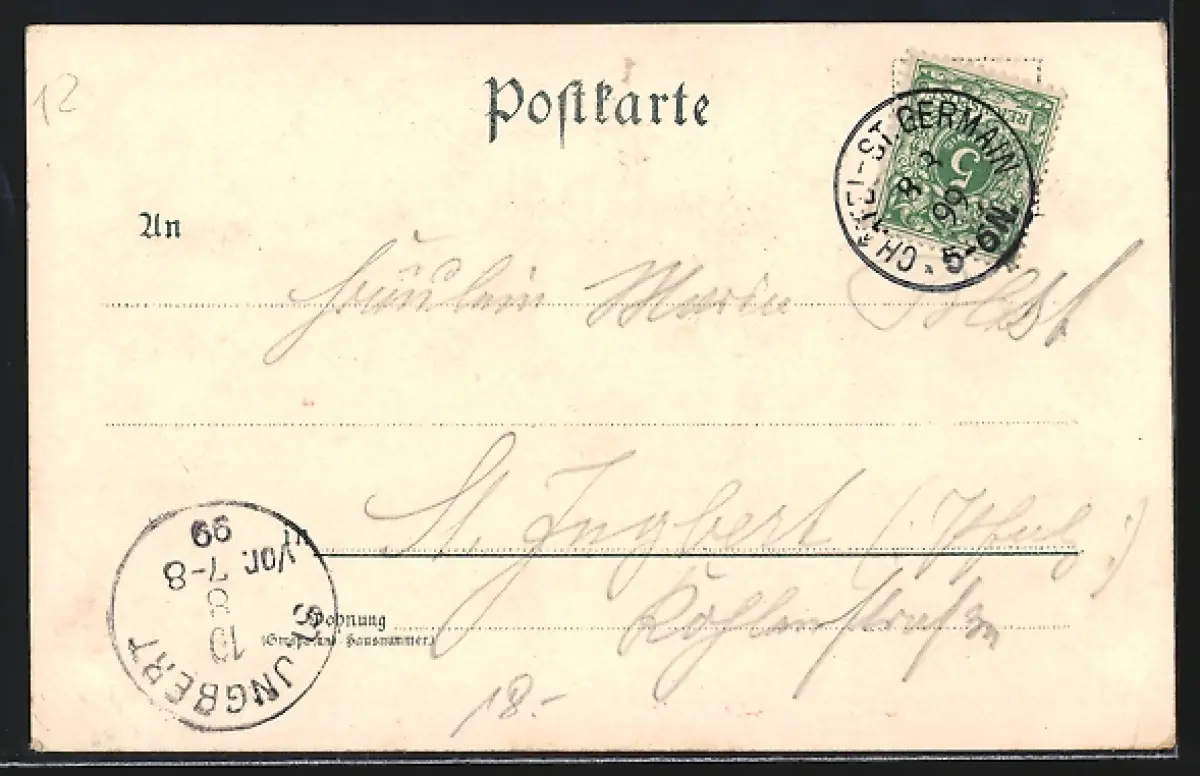 12
Postkarte
REICHSPOST
5
CHATEL-ST. GERMAIN
8 8
99
5-6N.
An
Fräulein Marie
St. Ingbert (Pfalz)
in
Wohnung
(Straße und Hausnummer)
Kohlenstraße
18.-
ST. INGBERT
10 8
Vor. 7-8
99